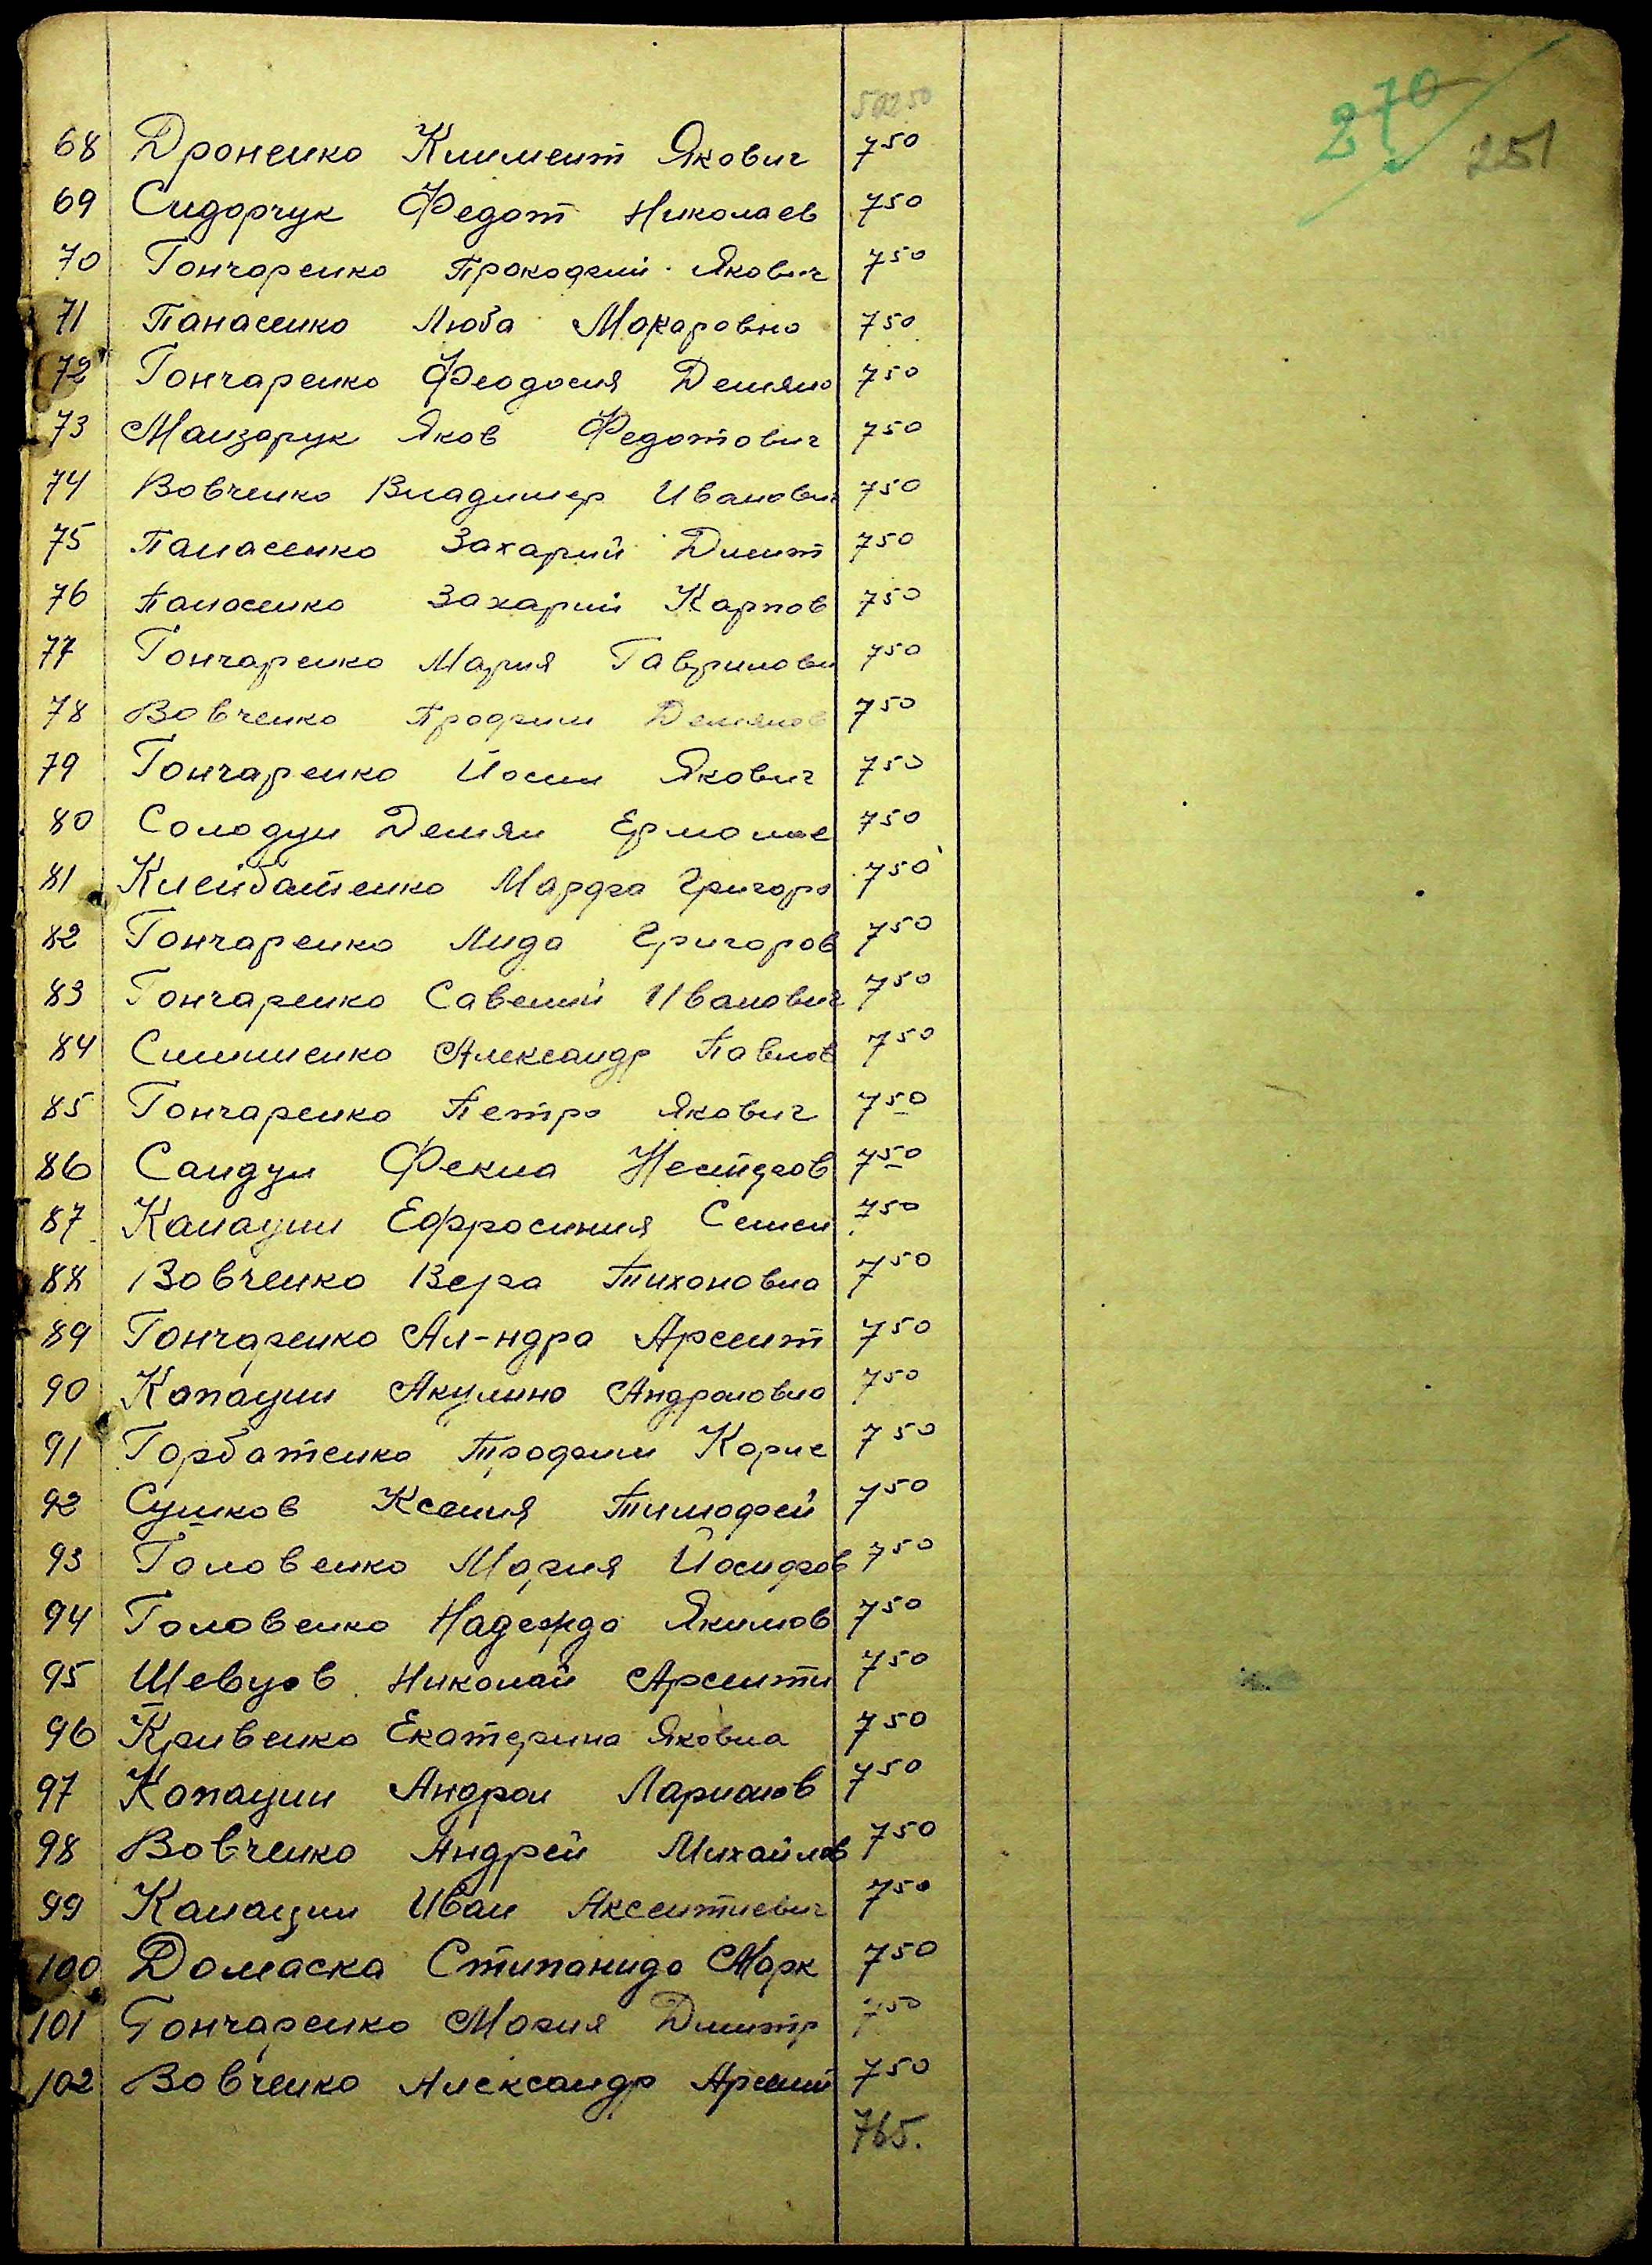 502 50
270
251
68 Дроненко Климент Якович 7 50
69 Сидорчук Федот Николаев 7 50
70 Гончаренко Прокофий Якович 7 50
71 Панасенко Люба Макаровно 7 50
72 Гончаренко Феодосия Демяно 7 50
73 Манзарук Яков Федотович 7 50
74 Вовченко Владимер Иванович 7 50
75 Панасенко Захарий Дмит 7 50
76 Панасенко Захарий Карпов 7 50
77 Гончаренко Мария Гаврилови 7 50
78 Вовченко Профим Демянов 7 50
79 Гончаренко Йосип Якович 7 50
80 Солодун Демян Ермолае 7 50
81 Клейбатенко Марфа Григоро 7 50
82 Гончаренко Лида Григоров 7 50
83 Гончаренко Савелий Иванович 7 50
84 Симоненко Александр Павлов 7 50
85 Гончаренко Петро Якович 7 50
86 Сандул Фекла Нестеров 7 50
87 Капацин Ефросиния Семен 7 50
88 Вовченко Вера Тихоновна 7 50
89 Гончаренко Ал-ндра Арсент 7 50
90 Капацин Акулина Андроновна 7 50
91 Горбатенко Трофим Корне 7 50
92 Сушков Ксения Тимофей 7 50
93 Головенко Мария Йосифов 7 50
94 Головенко Надежда Якимов 7 50
95 Шевцов Николай Арсенти 7 50
96 Кривенко Екатерина Яковна 7 50
97 Капацин Андрон Ларионов 7 50
98 Вовченко Андрей Михайлов 7 50
99 Капацин Иван Аксентиевич 7 50
100 Домаска Стипанида Марк 7 50
101 Гончаренко Мария Дмитр 7 50
102 Вовченко Александр Арсений 7 50
765.